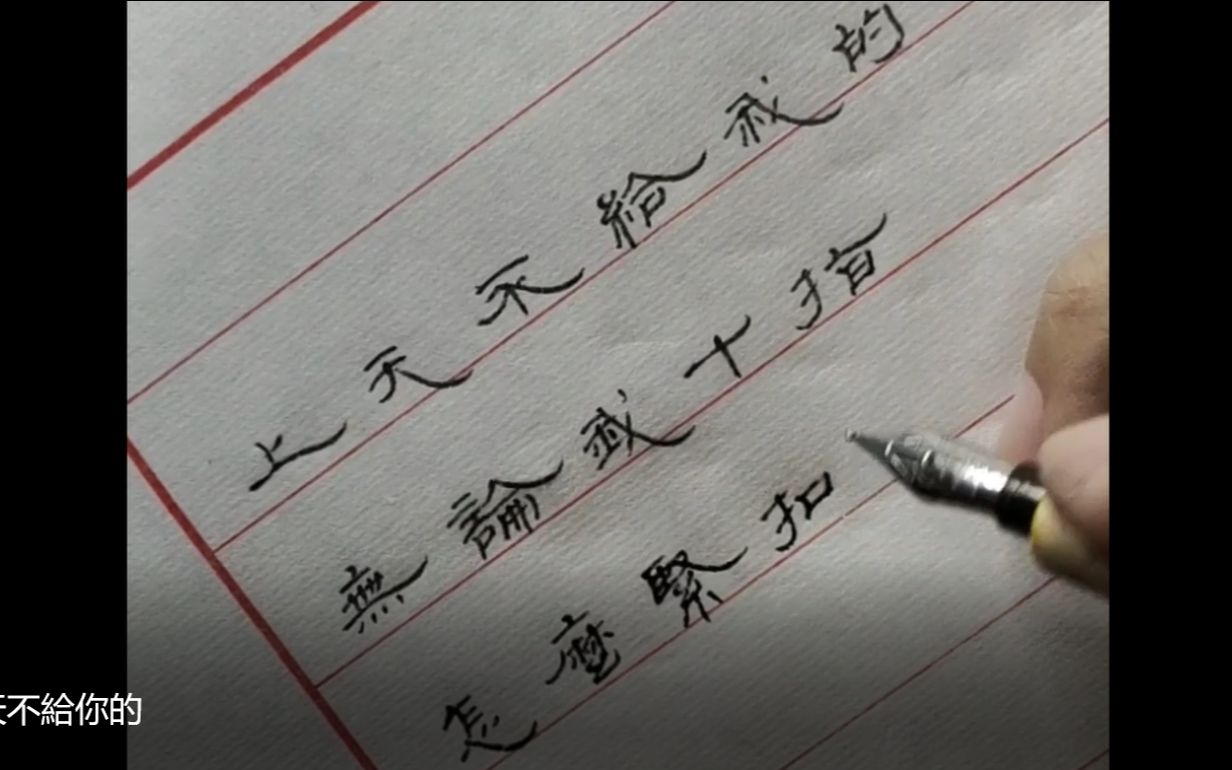 上天不給我的
無論我十指
怎麼緊扣
天不給你的